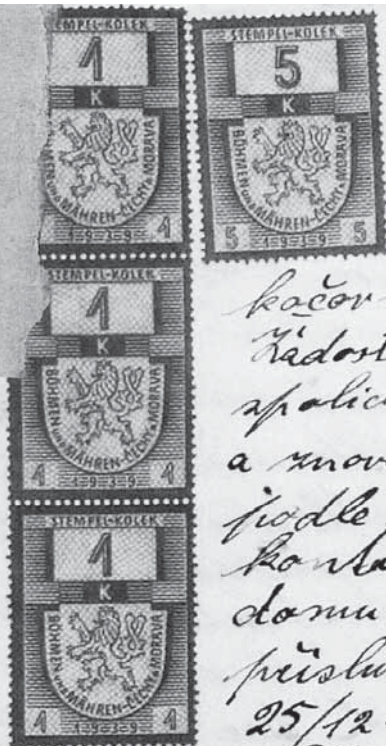 STEMPEL-KOLEK
1
K
BÖHMEN UND MÄHREN-ČECHY A MORAVA
1
1-9-3-9
STEMPEL-KOLEK
5
K
BÖHMEN UND MÄHREN-ČECHY A MORAVA
5 1-9-3-9 5
STEMPEL-KOLEK
1
K
BÖHMEN UND MÄHREN-ČECHY A MORAVA
1 1-9-3-9 1
STEMPEL-KOLEK
1
K
BÖHMEN UND MÄHREN-ČECHY A MORAVA
1 1-9-3-9 1
kočov
žádost
spolic
a znov
podle
konta
domu
příslu
25/12